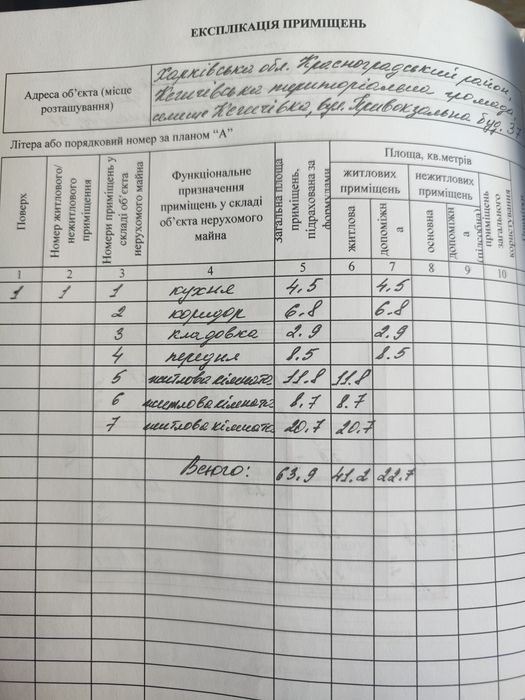 ЕКСПЛІКАЦІЯ ПРИМІЩЕНЬ
Адреса об’єкта (місце розташування)
Харківська обл. Красноградський район,
Кегичівська територіальна громада
селище Кегичівка, вул. Привокзальна буд. 37
Літера або порядковий номер за планом “А”
Поверх
Номер житлового/ нежитлового приміщення
Номери приміщень у складі об’єкта нерухомого майна
Функціональне призначення приміщень у складі об’єкта нерухомого майна
загальна площа приміщень, підрахована за формулами
Площа, кв.метрів
житлових приміщень
нежитлових приміщень
житлова
допоміжна
основна
допоміжна (підсобна)
приміщень загального користування
1 2 3 4 5 6 7 8 9 10
1 1 1 кухня 4.5 4.5
2 коридор 6.8 6.8
3 кладовка 2.9 2.9
4 передня 8.5 8.5
5 житлова кімната 11.8 11.8
6 житлова кімната 8.7 8.7
7 житлова кімната 20.7 20.7
Всього: 63.9 41.2 22.7